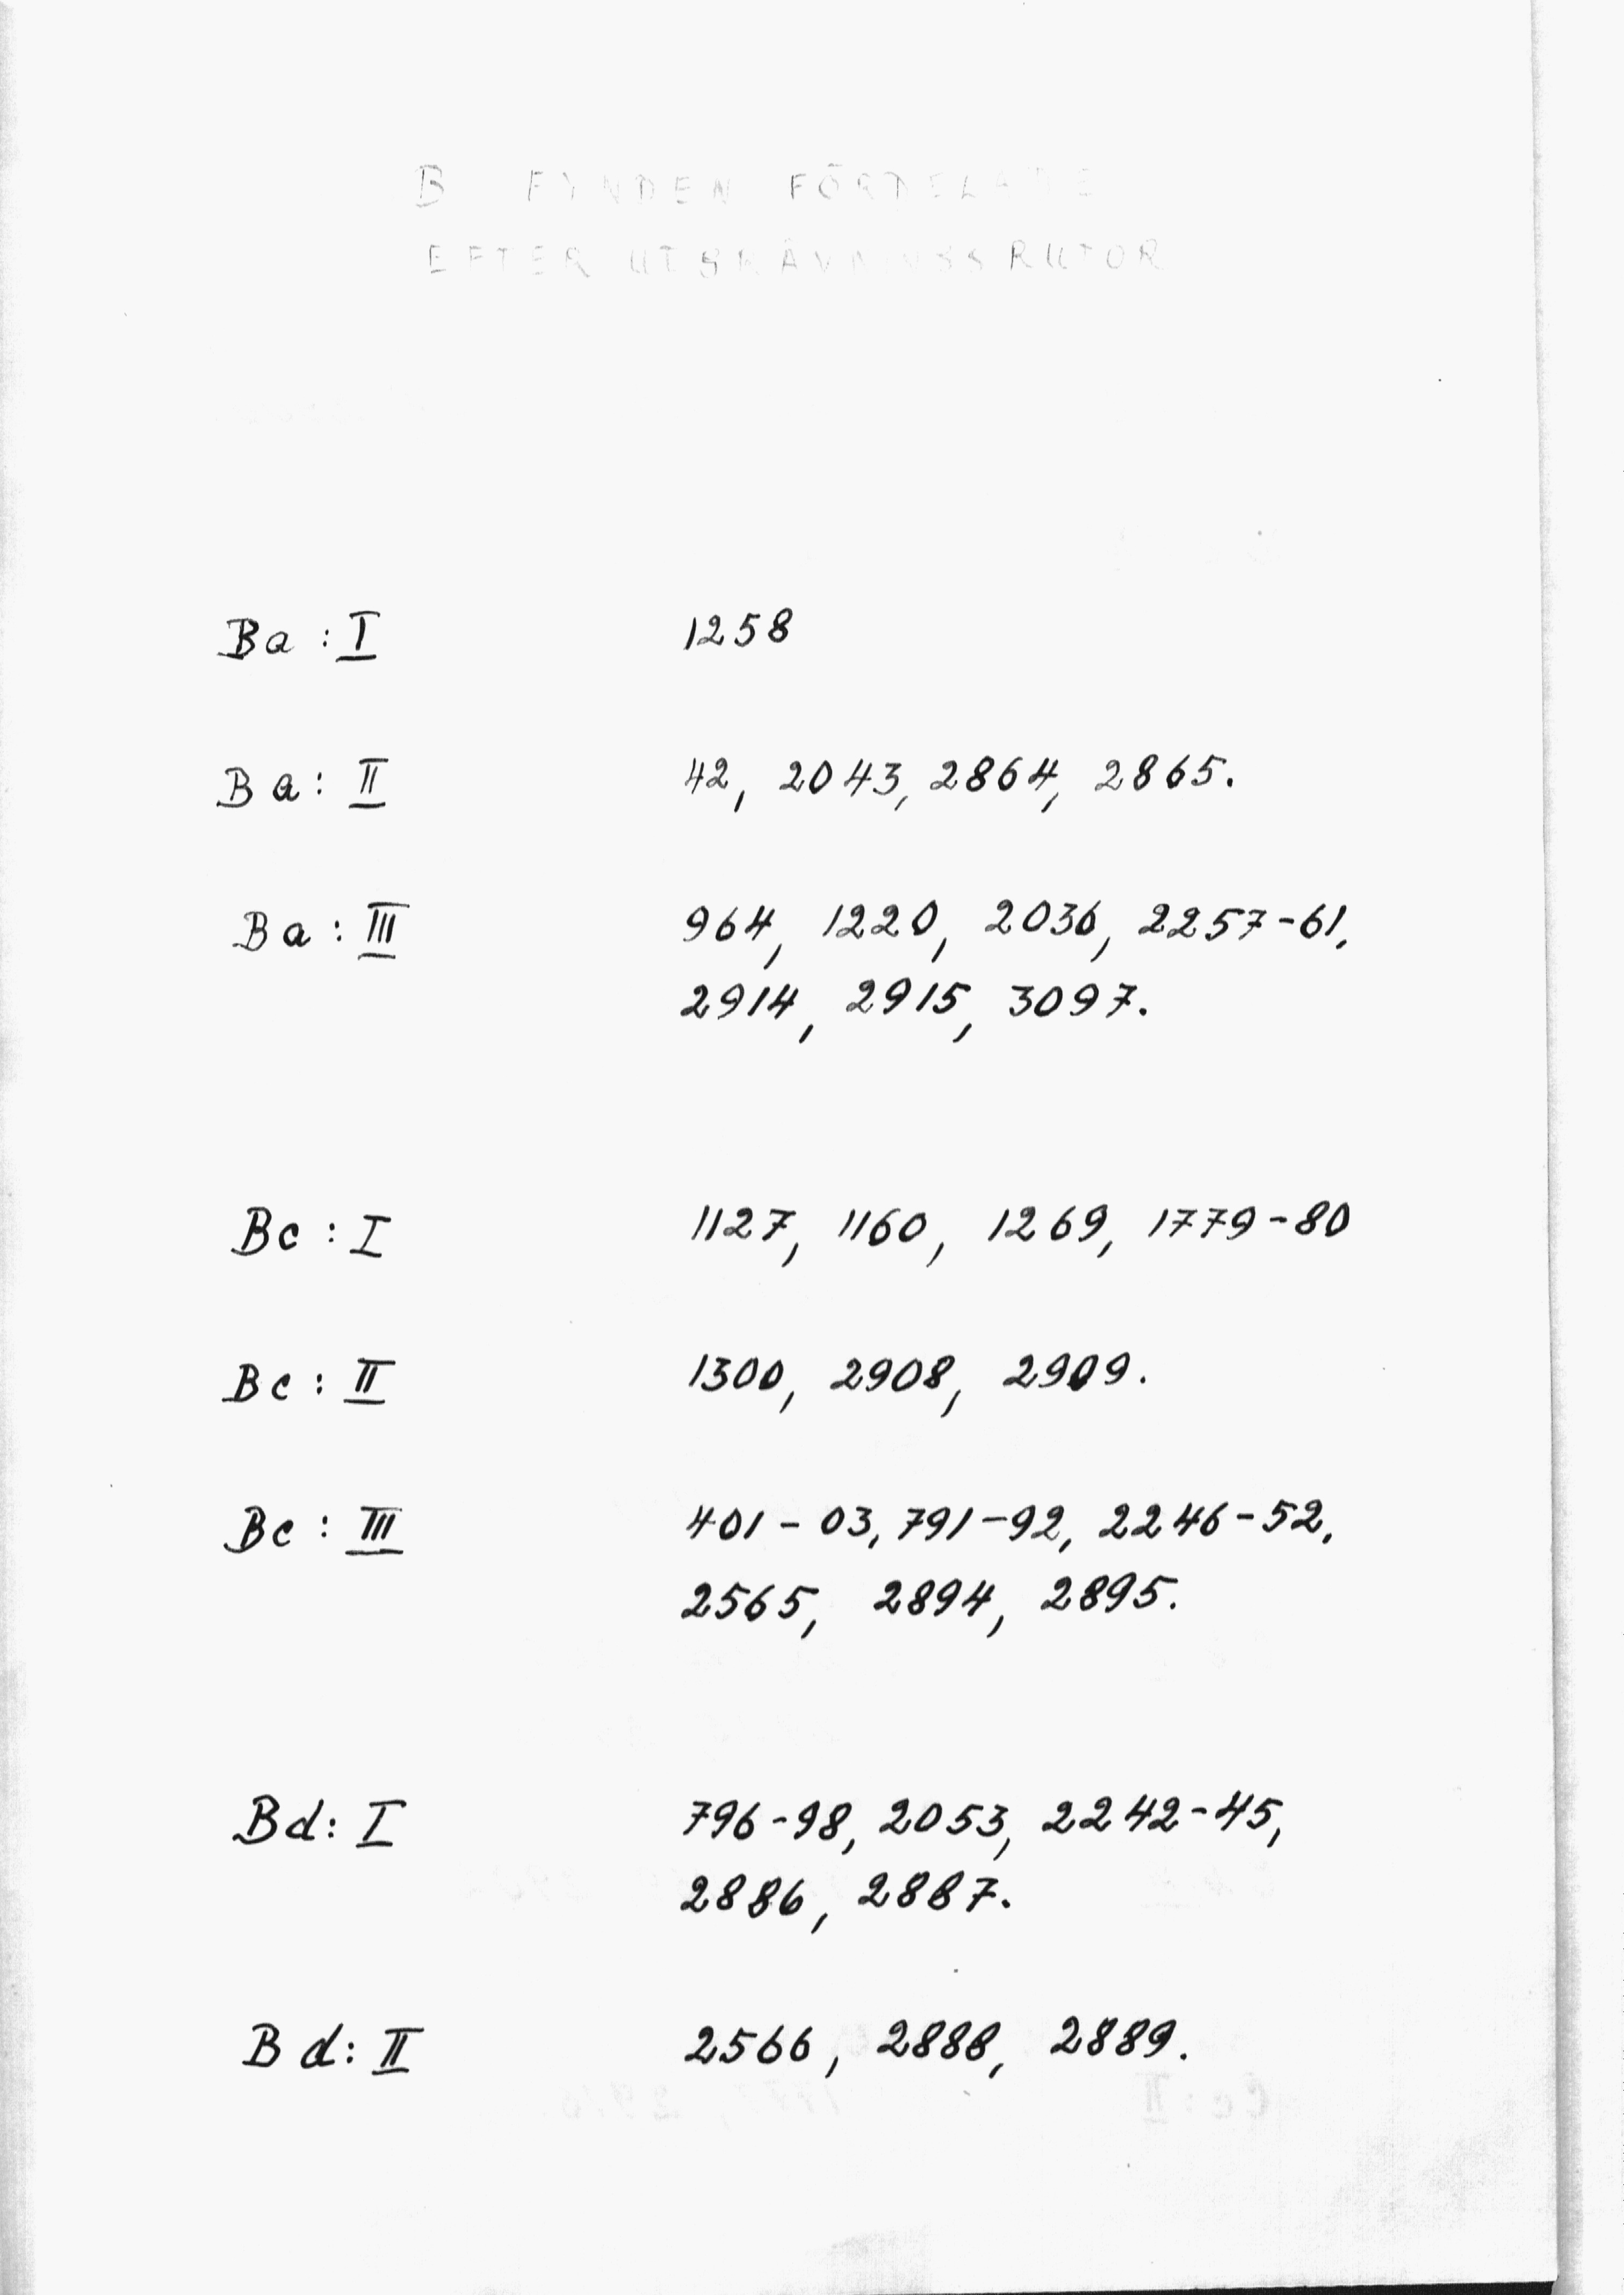 B FYNDEN FÖRDELADE
EFTER UTGRÄVNINGSRUTOR
Ba : I 1258
Ba : II 42, 2043, 2864, 2865.
Ba : III 964, 1220, 2036, 2257-61,
2914, 2915, 3097.
Bc : I 1127, 1160, 1269, 1779-80
Bc : II 1300, 2908, 2909.
Bc : III 401-03, 791-92, 2246-52,
2565, 2894, 2895.
Bd: I 796-98, 2053, 2242-45,
2886, 2887.
Bd: II 2566, 2888, 2889.